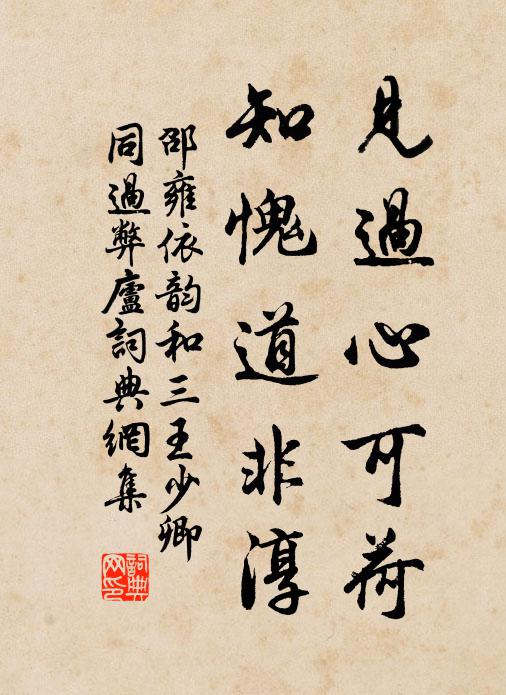 見過心可荷
知愧道非淳
邵雍依韵和三王少卿
同過弊廬詞典網集
詞典
网印